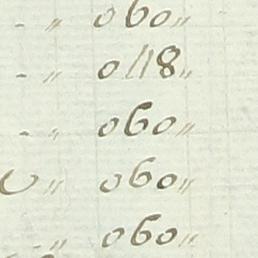 - " 060 "
- " 0118 "
- " 060 "
" 060 "
- " 060 "